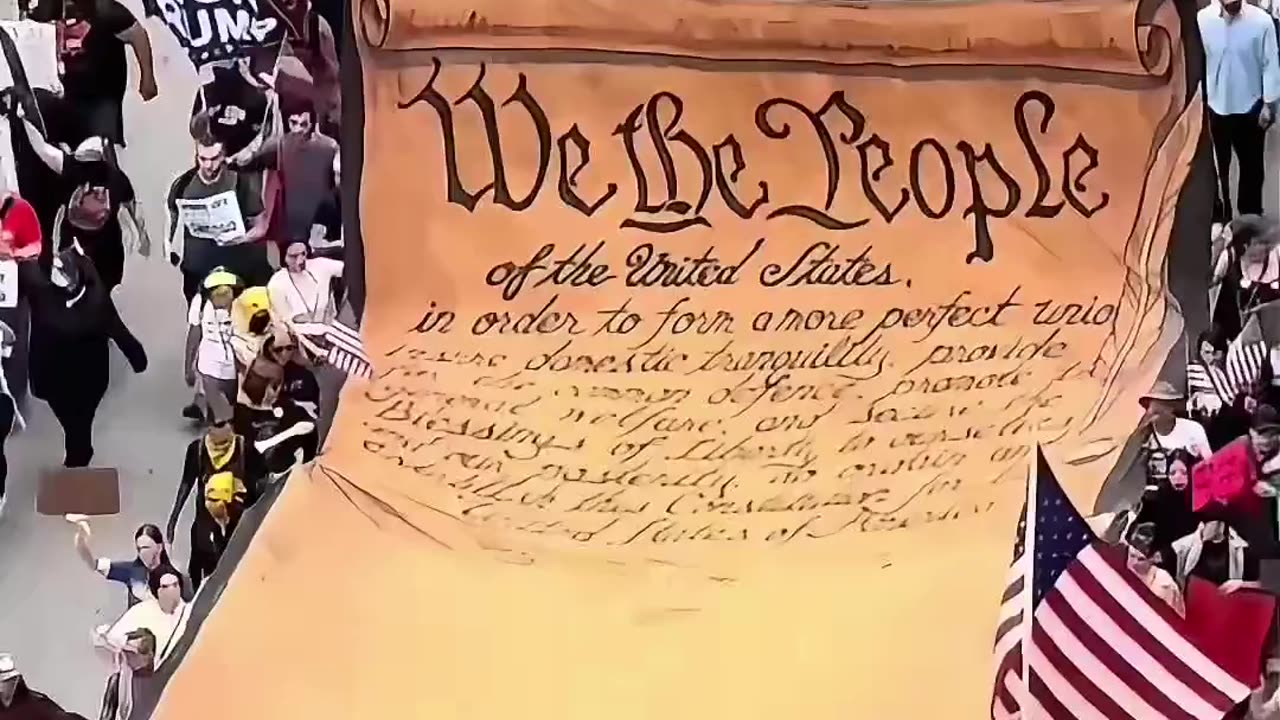 RUMP
We the People
of the United States,
in order to form a more perfect unio
insure domestic tranquility, provide
for the common defence, promote
general welfare, and secure the
Blessings of Liberty to ourselves
and our posterity, do ordain an
establish this Constitution for
United States of America